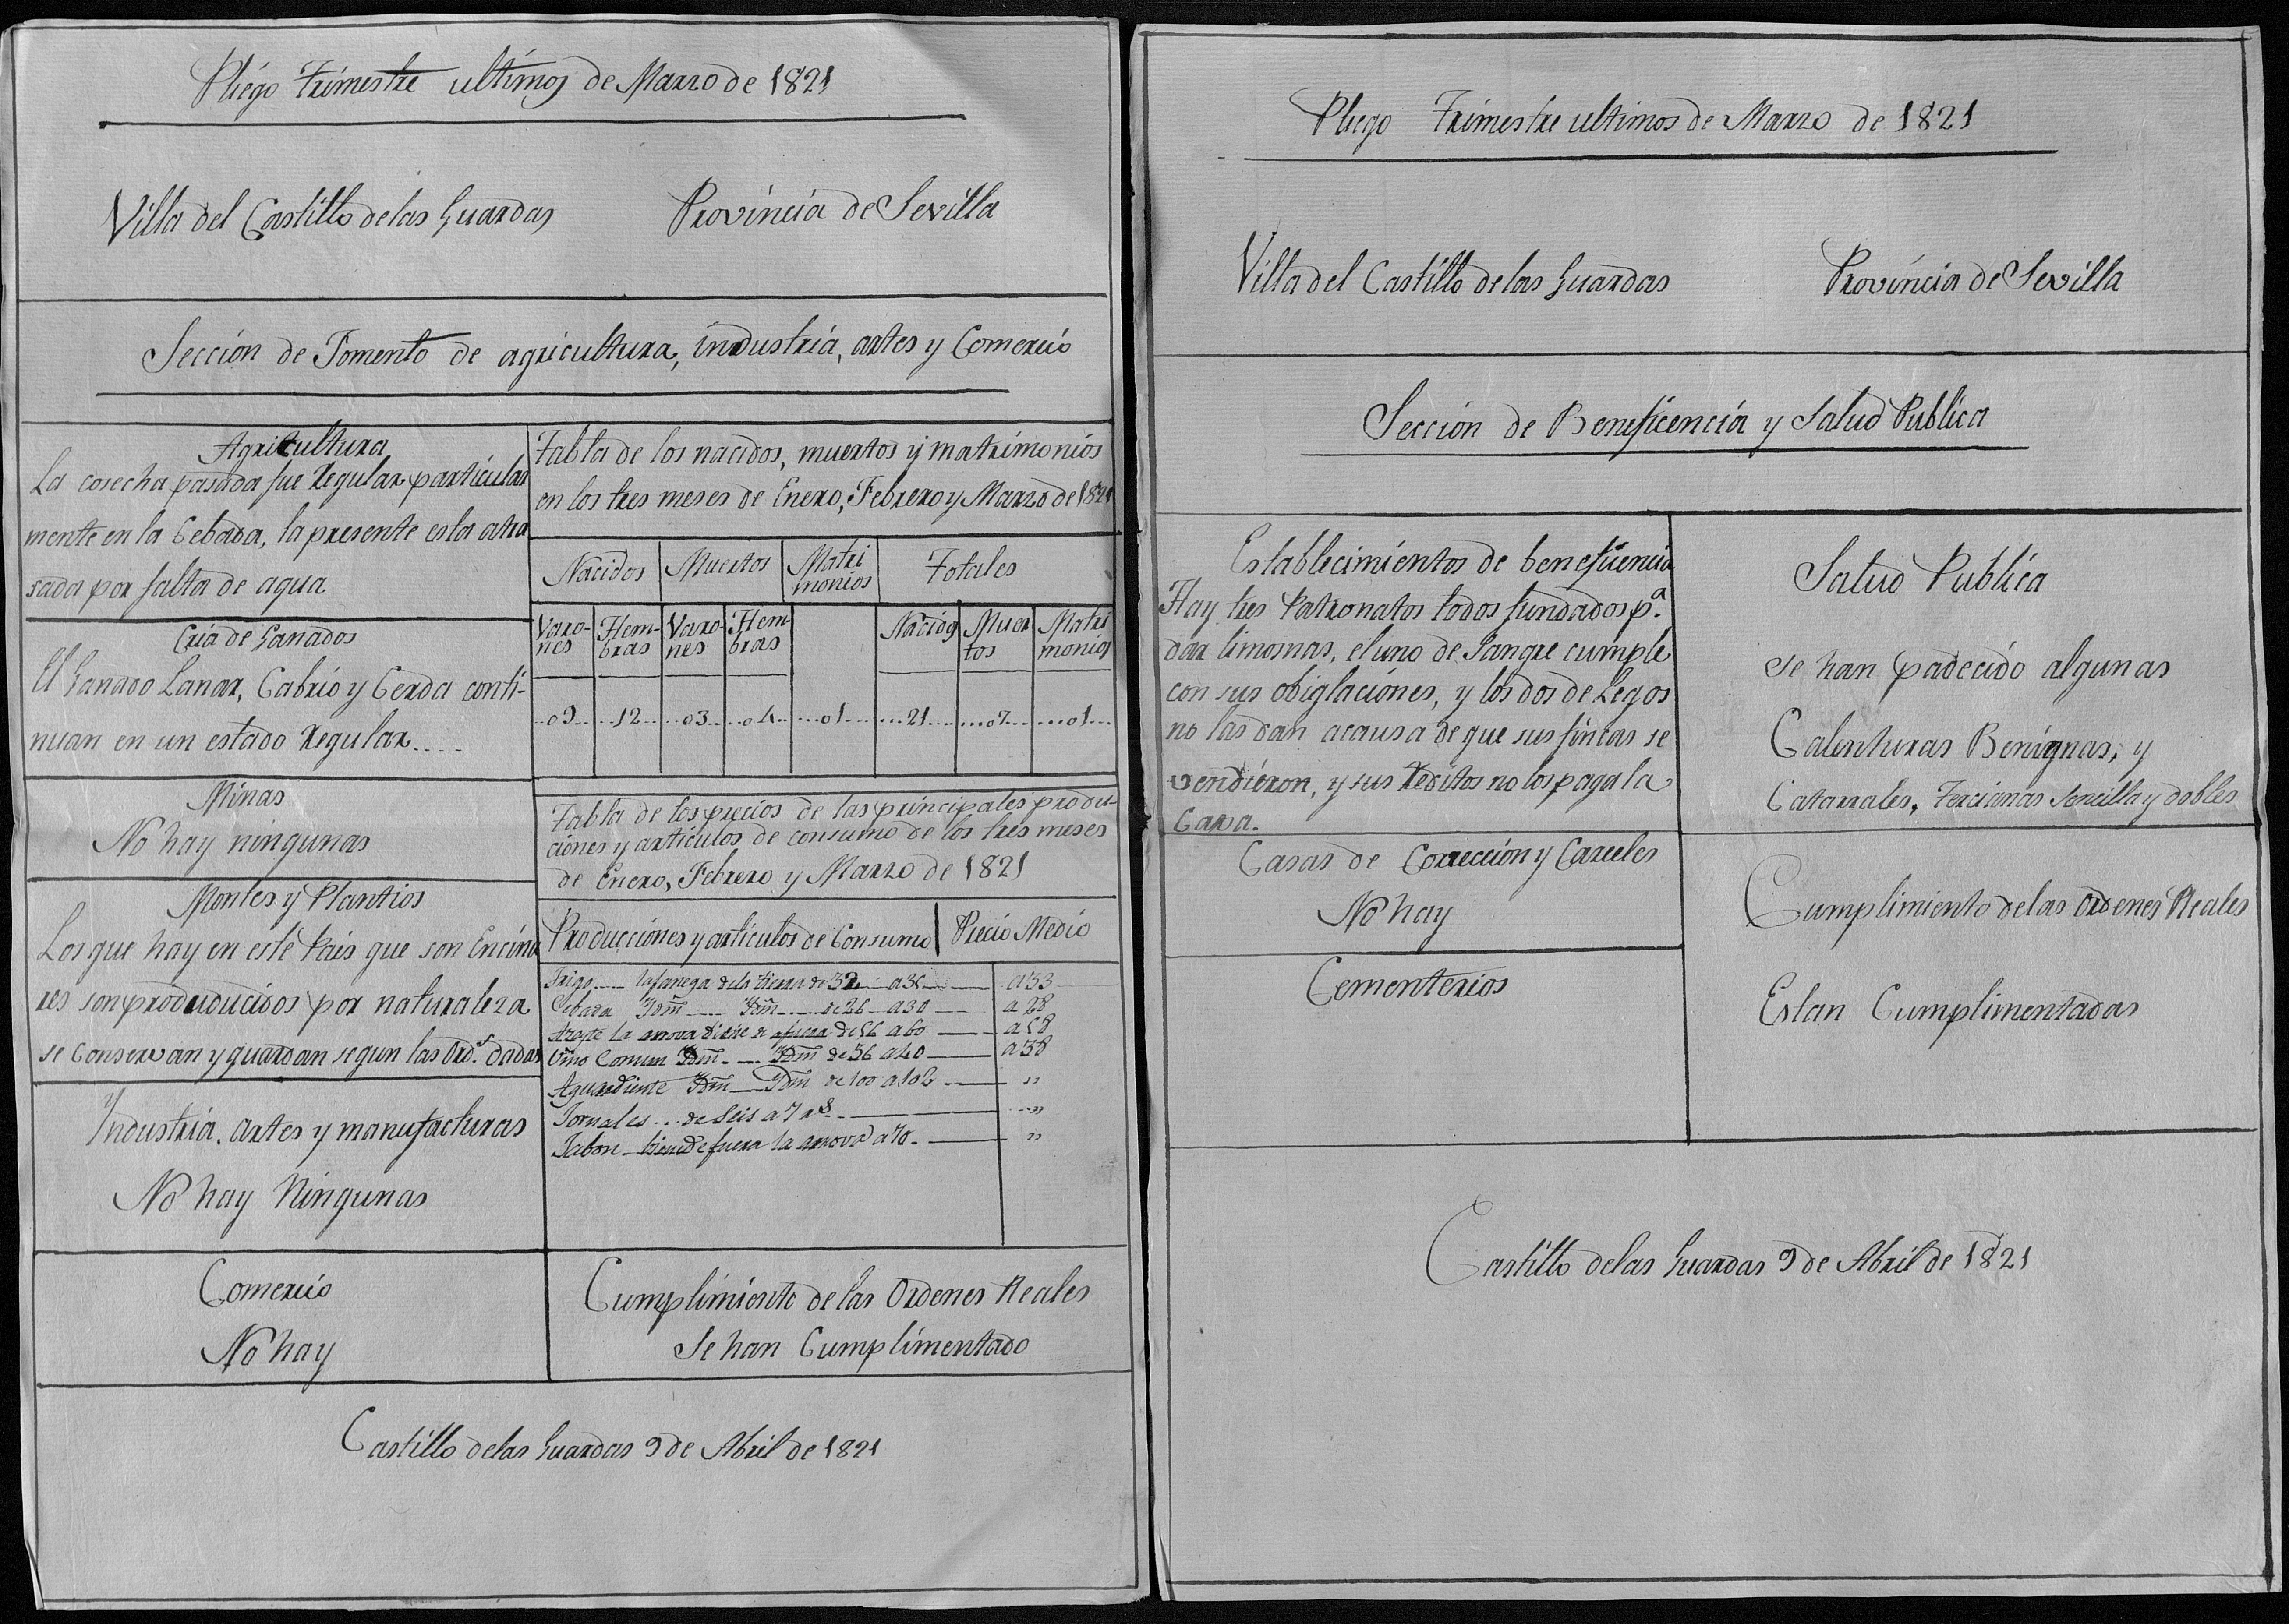 Pliego Trimestre ultimos de Marzo de 1821
Villa del Castillo de las Guardas Provincia de Sevilla
Sección de Fomento de agricultura, industria, artes y Comercio
Agricultura
La cosecha pasada fue Regular particular
mente en la Cebada, la presente esta atra
sada por falta de agua
Cria de Ganados
El Ganado Lanar, Cabrio y Cerda conti-
nuan en un estado Regular....
Minas
No hay ningunas
Montes y Plantios
Los que hay en este Pais que son Encina
res son produducidos por naturaleza
se Conservan y guardan segun las Ords. dadas
Yndustria, artes y manufacturas
No hay Ningunas
Comercio
No hay
Tabla de los nacidos, muertos y matrimonios
en los tres meses de Enero, Febrero y Marzo de 1821
Nacidos Muertos Matri Totales
monios
Varo- Hem- Varo- Hem- Nacidos Muer Matri
nes bras nes bras tos monios
..09.. ..12.. ..03.. ..04.. ...01... ...21... ...07... ...01...
Tabla de los precios de las principales produc-
ciones y articulos de consumo de los tres meses
de Enero, Febrero y Marzo de 1821
Producciones y articulos de Consumo Precio Medio
Trigo.... la fanega dela tierra de 32 a 36 a 33
Cebada Ydm̃ Ydm̃ de 26 a 30 a 28
Azeyte la arrova viene de afuera de 56 a 60 a 58
Vino Comun Ydm̃ Ydm̃ de 36 a 40 a 38
Aguardiente Ydm̃ Ydm̃ de 100 a 102 "
Jornales... de Seis a 7 rs "
Jabon viene de fuera la arrova a 70. "
Cumplimiento de las Ordenes Reales
Se han Cumplimentado
Castillo delas Guardas 9 de Abril de 1821
Pliego Trimestre ultimos de Marzo de 1821
Villa del Castillo de las Guardas Provincia de Sevilla
Sección de Beneficencia y Salud Publica
Establecimientos de beneficencia
Hay tres Patronatos todos fundados pa.
dar limosnas, el uno de Sangre cumple
con sus obiglaciones, y los dos de Legos
no las dan acausa de que sus fincas se
vendieron, y sus Reditos no los paga la
Caxa.
Casas de Corrección y Carceles
No hay
Cementerios
Salud Publica
se han padecido algunas
Calenturas Benignas, y
Catarrales, Tercianas Sencilla y dobles
Cumplimiento delas Ordenes Reales
Estan Cumplimentadas
Castillo delas Guardas 9 de Abril de 1821